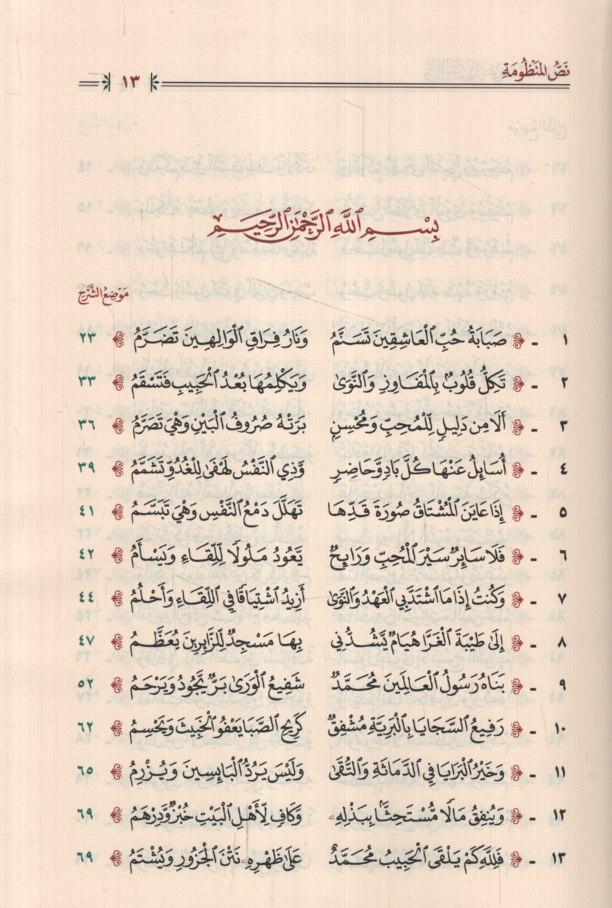 نَصُّ المَنْظُومَةِ
١٣
بِسْمِ ٱللَّهِ ٱلرَّحْمَٰنِ ٱلرَّحِيمِ
مَوْضِعُ الشَّرْحِ
١ - صَبَابَةُ حُبِّ الْعَاشِقِينَ تَسَنَّمُ وَنَارُ فِرَاقِ الْوَالِهِينَ تَضَرَّمُ ٢٣
٢ - تَكِلُّ قُلُوبٌ بِالْمَفَاوِزِ وَالنَّوَىٰ وَيَكْلِمُهَا بُعْدُ الْحَبِيبِ فَتَسْقَمُ ٣٣
٣ - أَلَا مِن دَلِيلٍ لِلْمُحِبِّ وَمُحْسِنٍ بَرَتْهُ صُرُوفُ الْبَيْنِ وَهْيَ تَصَرَّمُ ٣٦
٤ - أُسَائِلُ عَنْهَا كُلَّ بَادٍ وَحَاضِرٍ وَذِي النَّفْسُ لَهْفَىٰ لِلْغُدُوِّ تَشَمَّمُ ٣٩
٥ - إِذَا عَايَنَ الْمُشْتَاقُ صُورَةَ قَدِّهَا تَهَلَّلَ دَمْعُ النَّفْسِ وَهْيَ تَبَسَّمُ ٤١
٦ - فَلَا سَائِرٌ سَيْرَ الْمُحِبِّ وَرَابِحٌ يَعُودُ مَلُولًا لِلِّقَاءِ وَيَسْأَمُ ٤٢
٧ - وَكُنْتُ إِذَا مَا اشْتَدَّ بِي الْعَهْدُ وَالنَّوَىٰ أَزِيدُ اشْتِيَاقًا فِي اللِّقَاءِ وَأَحْلُمُ ٤٤
٨ - إِلَىٰ طَيْبَةَ الْغَرَّا هُيَامٌ يَشُدُّنِي بِهَا مَسْجِدٌ لِلزَّائِرِينَ يُعَظَّمُ ٤٧
٩ - بَنَاهُ رَسُولُ الْعَالَمِينَ مُحَمَّدٌ شَفِيعُ الْوَرَىٰ بَرٌّ يَجُودُ وَيَرْحَمُ ٥٢
١٠ - رَفِيعُ السَّجَايَا بِالْبَرِيَّةِ مُشْفِقٌ كَرِيحِ الصَّبَا يَعْفُو الْخَبِيثَ وَيَحْسِمُ ٦٢
١١ - وَخَيْرُ الْبَرَايَا فِي الدَّمَاثَةِ وَالتُّقَىٰ وَلَيْسَ يَرُدُّ الْبَايِسِينَ وَيُزْرِمُ ٦٥
١٢ - وَيُنْفِقُ مَالًا مُسْتَحِثًّا بِبَذْلِهِ وَكَافٍ لِأَهْلِ الْبَيْتِ خُبْزٌ وَدِرْهَمُ ٦٩
١٣ - فَلِلَّهِ كَمْ يَلْقَى الْحَبِيبُ مُحَمَّدٌ عَلَىٰ ظَهْرِهِ نَتْنَ الْجَزُورِ وَيُشْتَمُ ٦٩